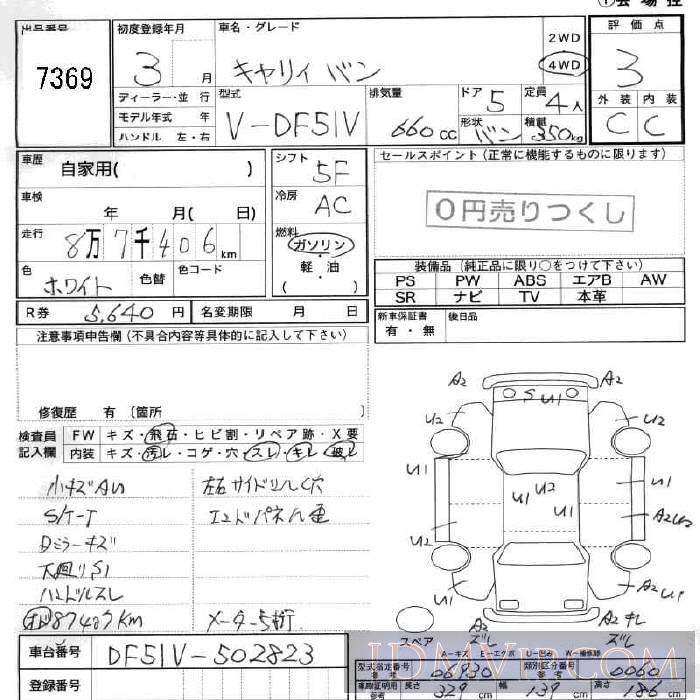 出品番号
7369
初度登録年月
3 月
車名・グレード
キャリィ バン
2WD
4WD
評価点
3
外装 内装
C C
ディーラー・並行
モデル年式 年
ハンドル 左・右
型式
V-DF51V
排気量
660 cc
ドア 5
形状 バン
定員 4 人
積載 350kg
車歴
自家用( )
車検
年 月( 日)
走行
8万7千406km
色
ホワイト
色替
色コード
シフト
5F
冷房
AC
燃料
ガソリン・
軽・油
( )
セールスポイント(正常に機能するものに限ります)
0円売りつくし
装備品(純正品に限り○をつけて下さい)
PS PW ABS エアB AW
SR ナビ TV 本革
R券 5,640 円
名変期限 月 日
新車保証書
有・無
後日品
注意事項申告欄(不具合内容等具体的に記入して下さい)
修復歴 有〔箇所
検査員
記入欄
FW キズ・飛石・ヒビ割・リペア跡・X要
内装 キズ・汚レ・コゲ・穴・スレ・キレ・破レ
小キズ
左右サイドシル穴
S/T-T
Dミラーキズ
下廻りS1
ハンドルスレ
87407km
メーター5桁
A2 A2
S U1
U2 U2
U1 U2 U1
U1 U1
U2 A2U2
U1 A2U1
A2 A2 キレ
スペア ズレ ズレ
A-キズ E-エクボ U-凹み W-補修跡
車台番号
DF51V-502823
登録番号
型式指定番号
06930
類別区分番号
0060
車両証明用
参考
長さ 329 cm
幅 139 cm
高さ 186 cm
JDMVIP.COM